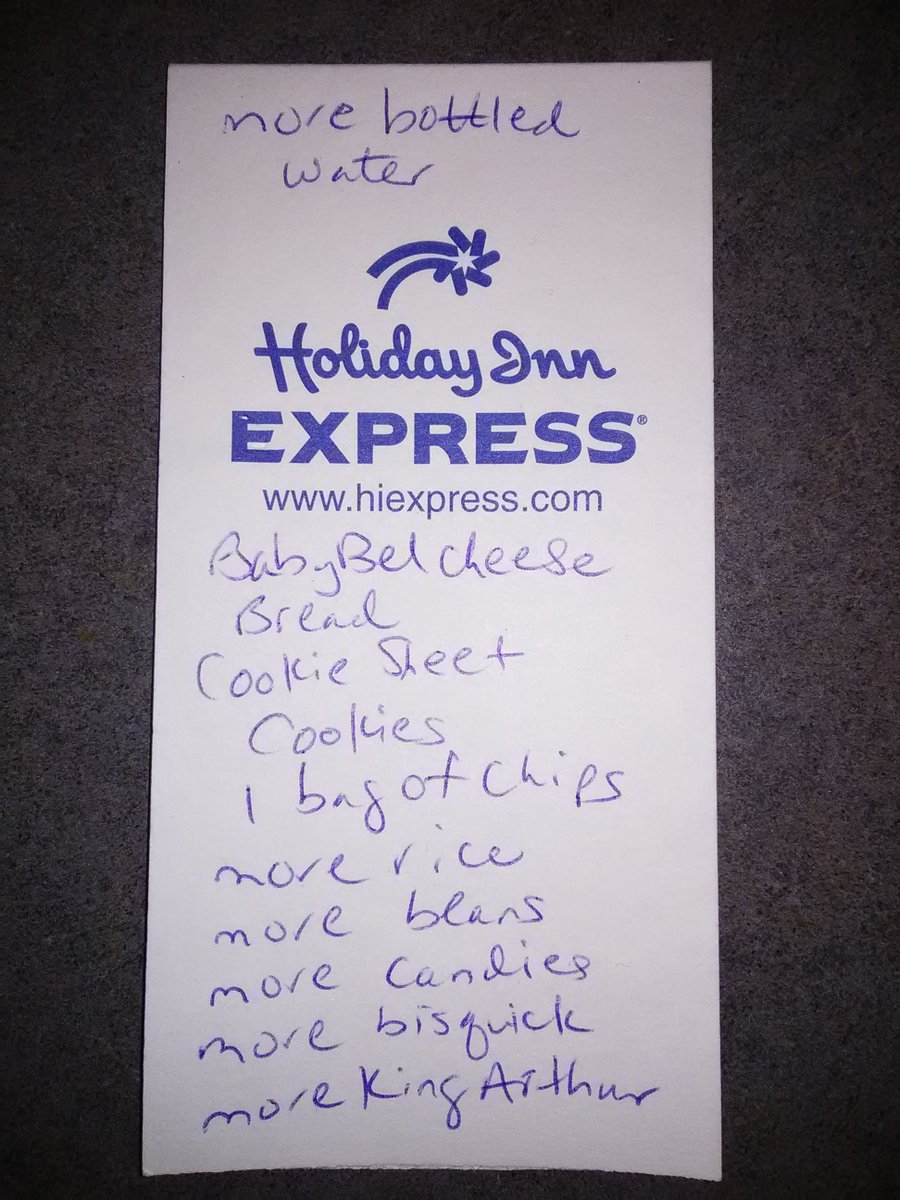 more bottled
water
Holiday Inn
EXPRESS®
www.hiexpress.com
BabyBel cheese
Bread
Cookie Sheet
Cookies
1 bag of chips
more rice
more beans
more candies
more bisquick
more King Arthur